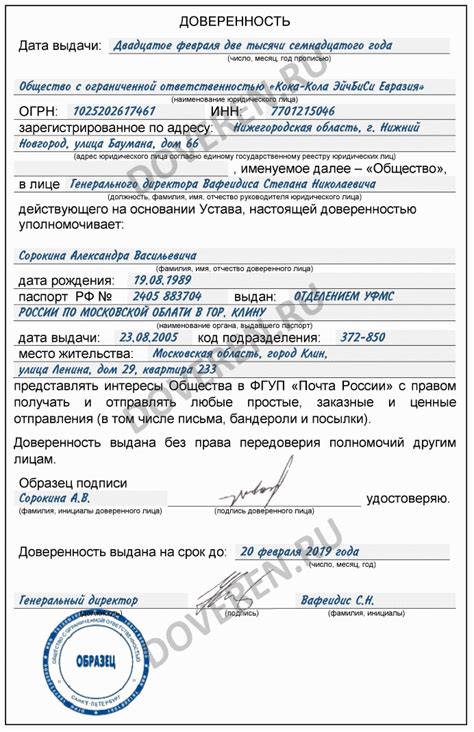 ДОВЕРЕННОСТЬ
Дата выдачи: Двадцатое февраля две тысячи семнадцатого года
(число, месяц, год прописью)
Общество с ограниченной ответственностью «Кока-Кола ЭйчБиСи Евразия»
(наименование юридического лица)
ОГРН: 1025202617461 ИНН: 7701215046
зарегистрированное по адресу: Нижегородская область, г. Нижний
Новгород, улица Баумана, дом 66
(адрес юридического лица согласно единому государственному реестру юридических лиц)
, именуемое далее – «Общество»,
в лице Генерального директора Вафеидиса Степана Николаевича
(должность, фамилия, имя, отчество руководителя юридического лица)
действующего на основании Устава, настоящей доверенностью
уполномочивает:
Сорокина Александра Васильевича
(фамилия, имя, отчество доверенного лица)
дата рождения: 19.08.1989
паспорт РФ № 2405 883704 выдан: ОТДЕЛЕНИЕМ УФМС
РОССИИ ПО МОСКОВСКОЙ ОБЛАТИ В ГОР. КЛИНУ
(наименование органа, выдавшего паспорт)
дата выдачи: 23.08.2005 код подразделения: 372-850
место жительства: Московская область, город Клин,
улица Ленина, дом 29, квартира 233
представлять интересы Общества в ФГУП «Почта России» с правом
получать и отправлять любые простые, заказные и ценные
отправления (в том числе письма, бандероли и посылки).
Доверенность выдана без права передоверия полномочий другим
лицам.
Образец подписи
Сорокина А.В. удостоверяю.
(фамилия, инициалы доверенного лица) (подпись доверенного лица)
Доверенность выдана на срок до: 20 февраля 2019 года
(число, месяц, год)
Генеральный директор Вафеидис С.Н.
(должность) (подпись) (фамилия, инициалы)
ОБЩЕСТВО С ОГРАНИЧЕННОЙ ОТВЕТСТВЕННОСТЬЮ
ОБРАЗЕЦ
САНКТ-ПЕТЕРБУРГ
DOVEREN.RU
DOVEREN.RU
DOVEREN.RU